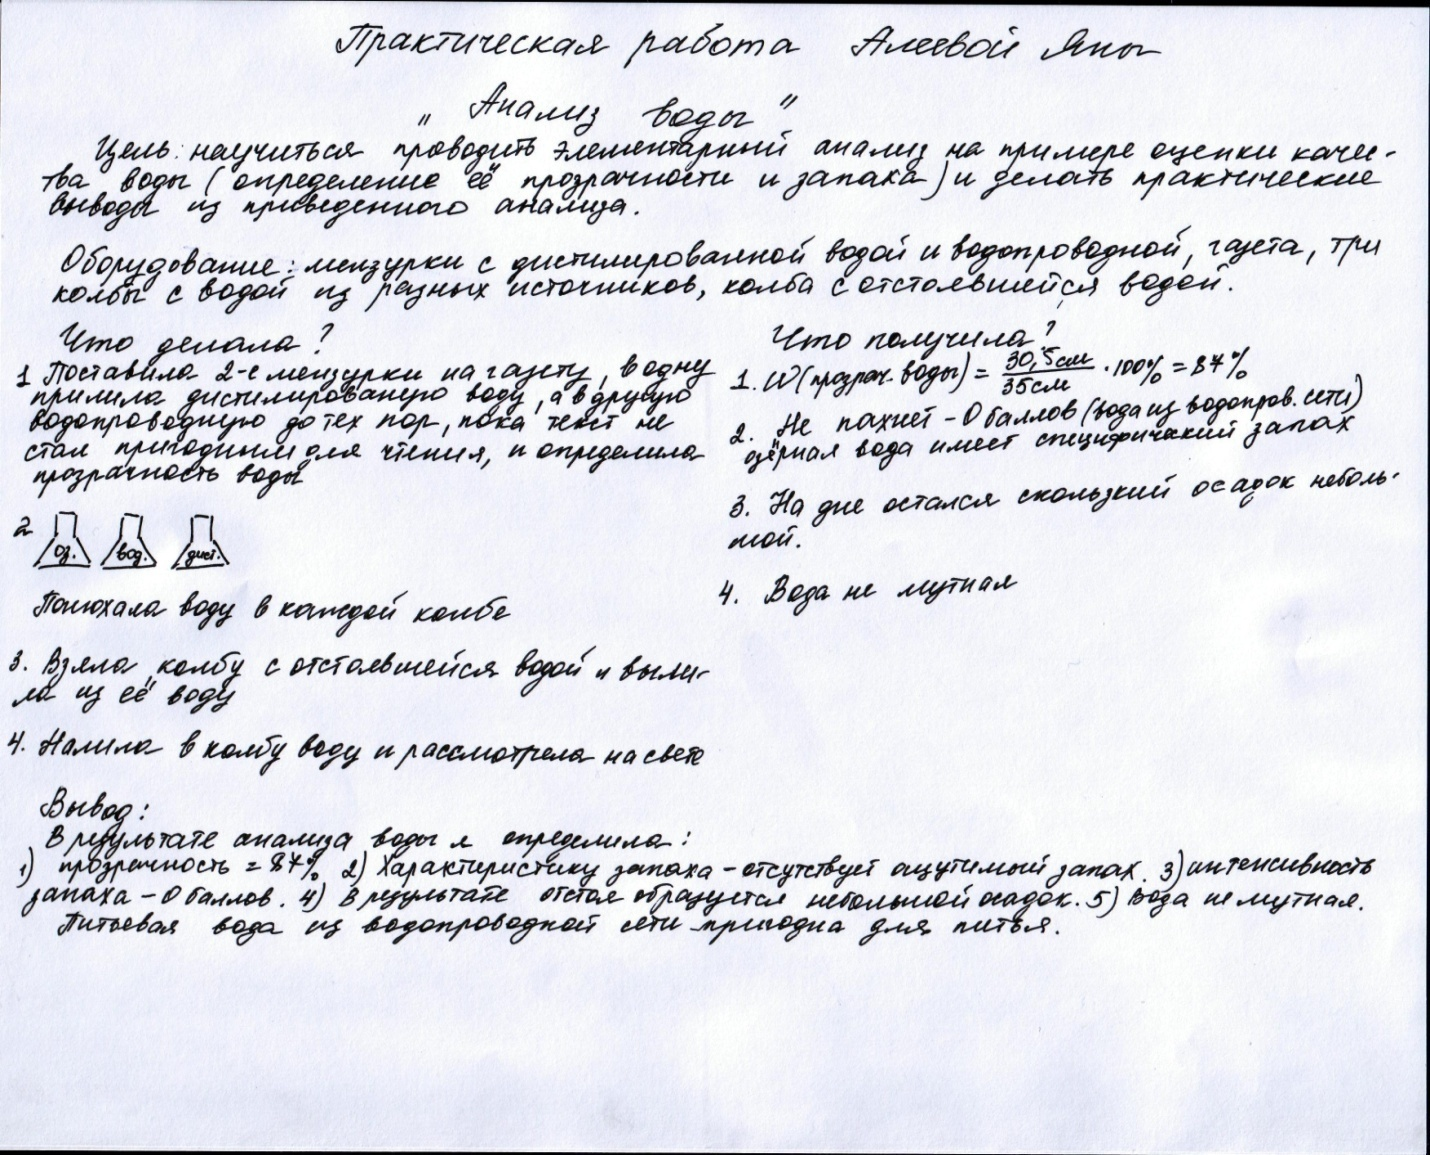 Практическая работа Алеевой Яны
„ Анализ воды "
Цель: научиться проводить элементарный анализ на примере оценки качес-
тва воды (определение её прозрачности и запаха) и делать практические
выводы из приведенного анализа.
Оборудование: мензурки с дистилированной водой и водопроводной, газета, три
колбы с водой из разных источников, колба с отстоявшейся водой.
Что делала?
1 Поставила 2-е мензурки на газету, в одну
прилила дистилированую воду, а в другую
водопроводную до тех пор, пока текст не
стал пригодным для чтения, и определила
прозрачность воды
2
оз. вод. дист.
Понюхала воду в каждой колбе
3. Взяла колбу с отстоявшейся водой и выли-
ла из её воду
4. Налила в колбу воду и рассмотрела на свете
Что получила?
1. W (прозрач. воды) = 30,5см / 35см · 100% = 87%
2. Не пахнет - 0 баллов (вода из водопров. сети)
озёрная вода имеет специфический запах
3. На дне остался скользкий осадок неболь-
шой.
4. Вода не мутная
Вывод:
В результате анализа воды я определила:
1) прозрачность = 87% 2) Характеристику запаха - отсутствует ощутимый запах. 3) интенсивность
запаха - 0 баллов. 4) В результате отстоя образуется небольшой осадок. 5) Вода не мутная.
Питьевая вода из водопроводной сети пригодна для питья.